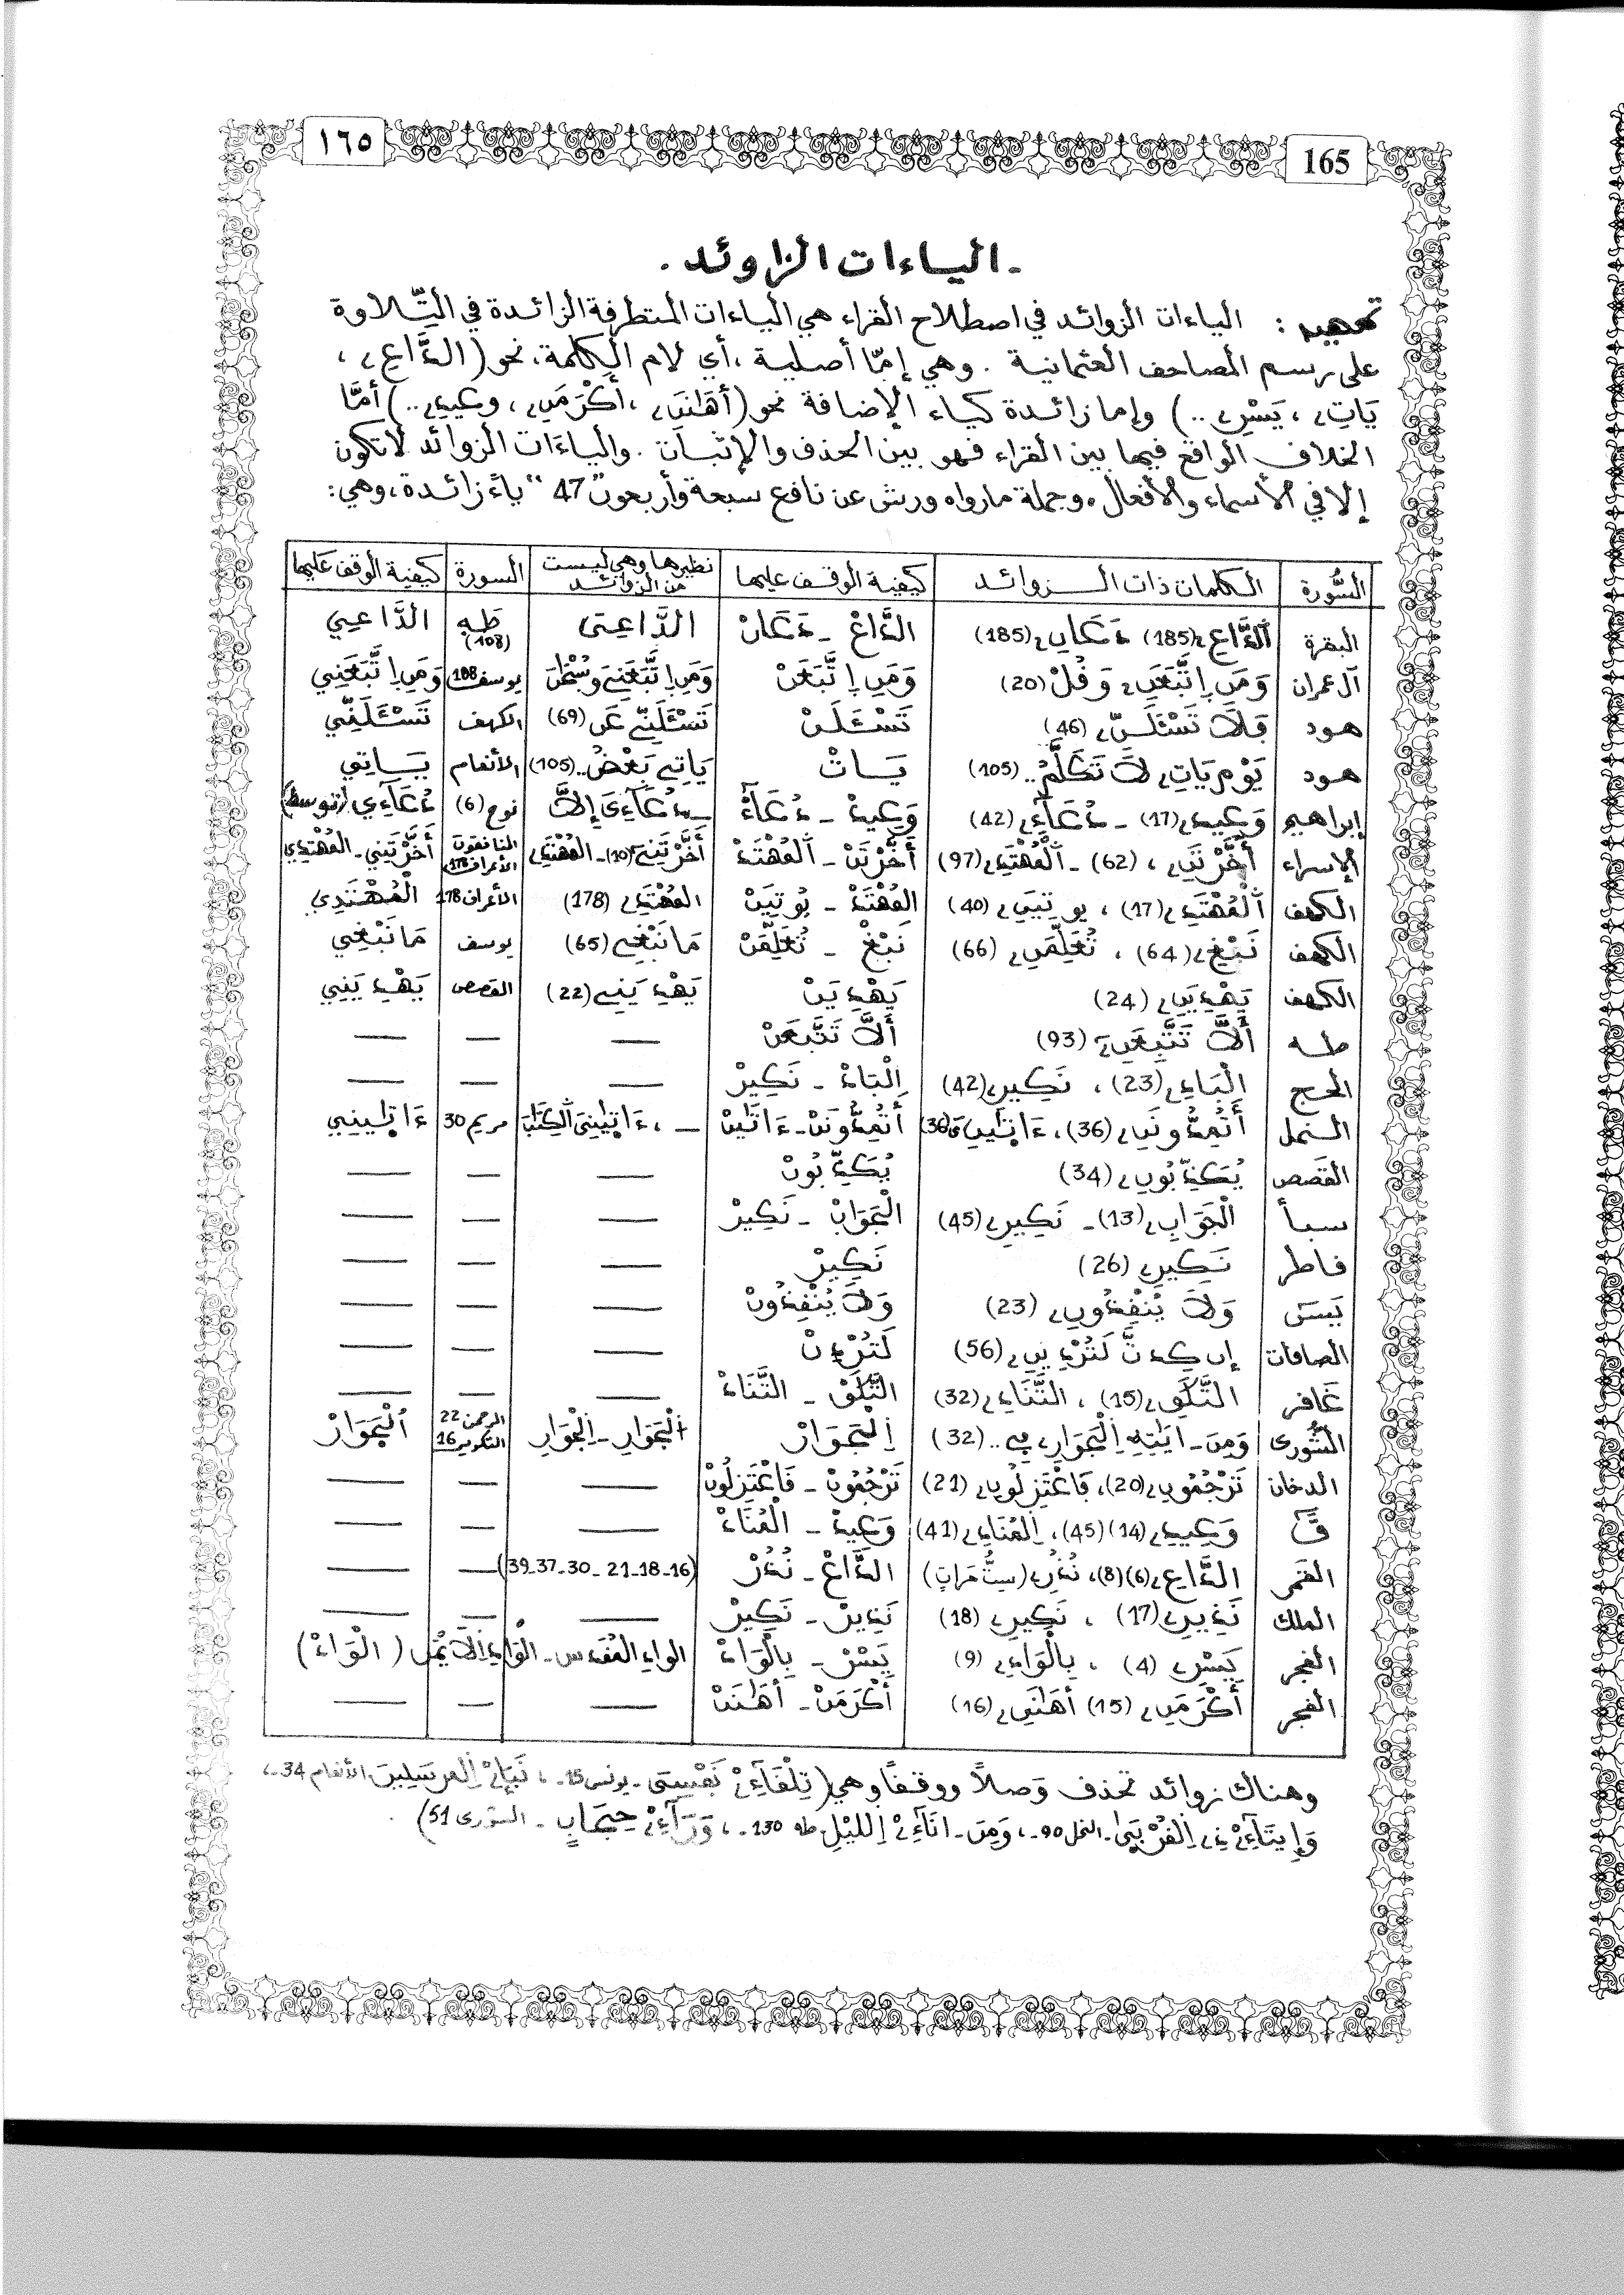 ١٦٥
165
- الياءات الزوائد .
تمهيد : الياءات الزوائد في اصطلاح القراء هي الياءات المتطرفة الزائدة في التِّلاوة
على رسم المصاحف العثمانية . وهي إمّا أصلية ، أي لام الكلمة، نحو (الدَّاعِۦ ،
يَاتِۦ ، يَسْرِۦ ..) وإما زائدة كياء الإضافة نحو (أَهَٰنَنِۦ ، أَكْرَمَنِۦ ، وعيدِۦ ..) أمَّا
الخلاف الواقع فيها بين القراء فهو بين الحذف والإثبات . والياءَات الزوائد لا تكون
إلا في الأسماء والأفعال . وجملة مارواه ورش عن نافع سبعة وأربعون "47" ياءً زائدة، وهي:
السُّورة | الكلمات ذات الـزوائـد | كيفية الوقف عليها | نظيرها وهي ليست من الزوائد | السورة | كيفية الوقف عليها
البقرة | اَلدَّاعِۦ (185) دَعَانِۦ (185) | الدَّاعْ - دَعَانْ | الدَّاعِىَ | طَهِ (108) | الدَّاعِي
آل عمران | وَمَنِ اِتَّبَعَنِۦ وَقُلْ (20) | وَمَنِ اِتَّبَعَنْ | وَمَنِ اِتَّبَعَنِے وَسُبْحَٰنَ | يوسف 108 | وَمَنِ اِتَّبَعَنِي
هود | فَلَا تَسْـَٔلَنِّۦ (46) | تَسْـَٔلَنْ | تَسْـَٔلَنِّے عَن (69) | الكهف | تَسْـَٔلَنِّي
هود | يَوْمَ يَاتِۦ لَا تَكَلَّمُ.. (105) | يَـاتْ | يَاتِے بَعْضُ.. (105) | الأنعام | يَـاتِي
إبراهيم | وَعِيدِۦ (17) - دُعَآءِۦ (42) | وَعِيدْ - دُعَآءْ | - دُعَآءِىَ إِلَّا | نوح (6) | دُعَآءِي (توسط)
الإسراء | أَخَّرْتَنِۦ ، (62) - اَلْمُهْتَدِۦ (97) | أَخَّرْتَنْ - اَلْمُهْتَدْ | أَخَّرْتَنِےَ (10) - المُهْتَدِے | المنافقون الأعراف 178 | أَخَّرْتَنِي - المُهْتَدِي
الكهف | اَلْمُهْتَدِۦ (17) ، يوتِيَنِۦ (40) | المُهْتَدْ - يُوتِيَنْ | المُهْتَدِے (178) | الأعراف 178 | الْمُهْتَدِي
الكهف | نَبْغِۦ (64) ، تُعَلِّمَنِۦ (66) | نَبْغْ - تُعَلِّمَنْ | مَا نَبْغِے (65) | يوسف | مَا نَبْغِي
الكهف | يَهْدِيَنِۦ (24) | يَهْدِيَنْ | يَهْدِيَنِے (22) | القصص | يَهْدِيَنِي
طه | أَلَّا تَتَّبِعَنِۦ (93) | أَلَّا تَتَّبِعَنْ | — | — | —
الحج | الْبَادِۦ (23) ، نَكِيرِۦ (42) | اِلْبَادْ - نَكِيرْ | — | — | —
النمل | أَتُمِدُّونَنِۦ (36) ، ءَاتَيٰنِۦَ (36) | أَتُمِدُّونَنْ - ءَاتَيٰنْ | - ، ءَاتَيٰنِىَ اَلْكِتَٰبَ | مريم 30 | ءَاتَيٰنِي
القصص | يُكَذِّبُونِۦ (34) | يُكَذِّبُونْ | — | — | —
سبأ | الْجَوَابِۦ (13) - نَكِيرِۦ (45) | الْجَوَابْ - نَكِيرْ | — | — | —
فاطر | نَكِيرِۦ (26) | نَكِيرْ | — | — | —
يَسٓ | وَلَا يُنقِذُونِۦ (23) | وَلَا يُنْقِذُونْ | — | — | —
الصافات | إِن كِدتَّ لَتُرْدِينِۦ (56) | لَتُرْدِنْ | — | — | —
غافر | التَّلَٰقِۦ (15) ، التَّنَادِۦ (32) | التَّلَٰقْ - التَّنَادْ | — | — | —
الشُّورى | وَمِنَ - ايَٰتِهِ اِلْجَوَارِۦ فِے .. (32) | اِلْجَوَارْ | اَلْجَوَارِ - اِلْجَوَارِ | الرحمن 22 التكوير 16 | اُلْجَوَارْ
الدخان | تَرْجُمُونِۦ (20)، فَاعْتَزِلُونِۦ (21) | تَرْجُمُونْ - فَاعْتَزِلُونْ | — | — | —
قٓ | وَعِيدِۦ (14) (45)، اِلمُنَادِۦ (41) | وَعِيدْ - الْمُنَادْ | — | — | —
القمر | الدَّاعِۦ (6) (8)، نُذُرِۦ (سِتُّ مَرَاتٍ) | الدَّاعْ - نُذُرْ | (16-18-21-30-37-39) | — | —
الملك | نَذِيرِۦ (17) ، نَكِيرِۦ (18) | نَذِيرْ - نَكِيرْ | — | — | —
الفجر | يَسْرِۦ (4) ، بِالْوَادِۦ (9) | يَسْرْ - بِالْوَادْ | الوادِ المُقَدَّسِ - الْوَادِ | اِلَايْمَنِ | (الْوَادْ)
الفجر | أَكْرَمَنِۦ (15) أَهَٰنَنِۦ (16) | أَكْرَمَنْ - أَهَٰنَنْ | — | — | —
وهناك زوائد تحذف وَصلاً ووقفاً وهي (تِلْقَآءِےْ نَفْسِىَ - يونس 15 - ، نَبَإِےْ اِلمرسَلِينَ الأنعام 34 - ،
وَإِيتَآءِےْ ذِے اِلْقُرْبَىٰ - النحل 90 - ، وَمِنَ - انَآءِےْ اِلليْلِ طه 130 - ، وَرَآءِےْ حِجَابٍ - الشورى 51) .